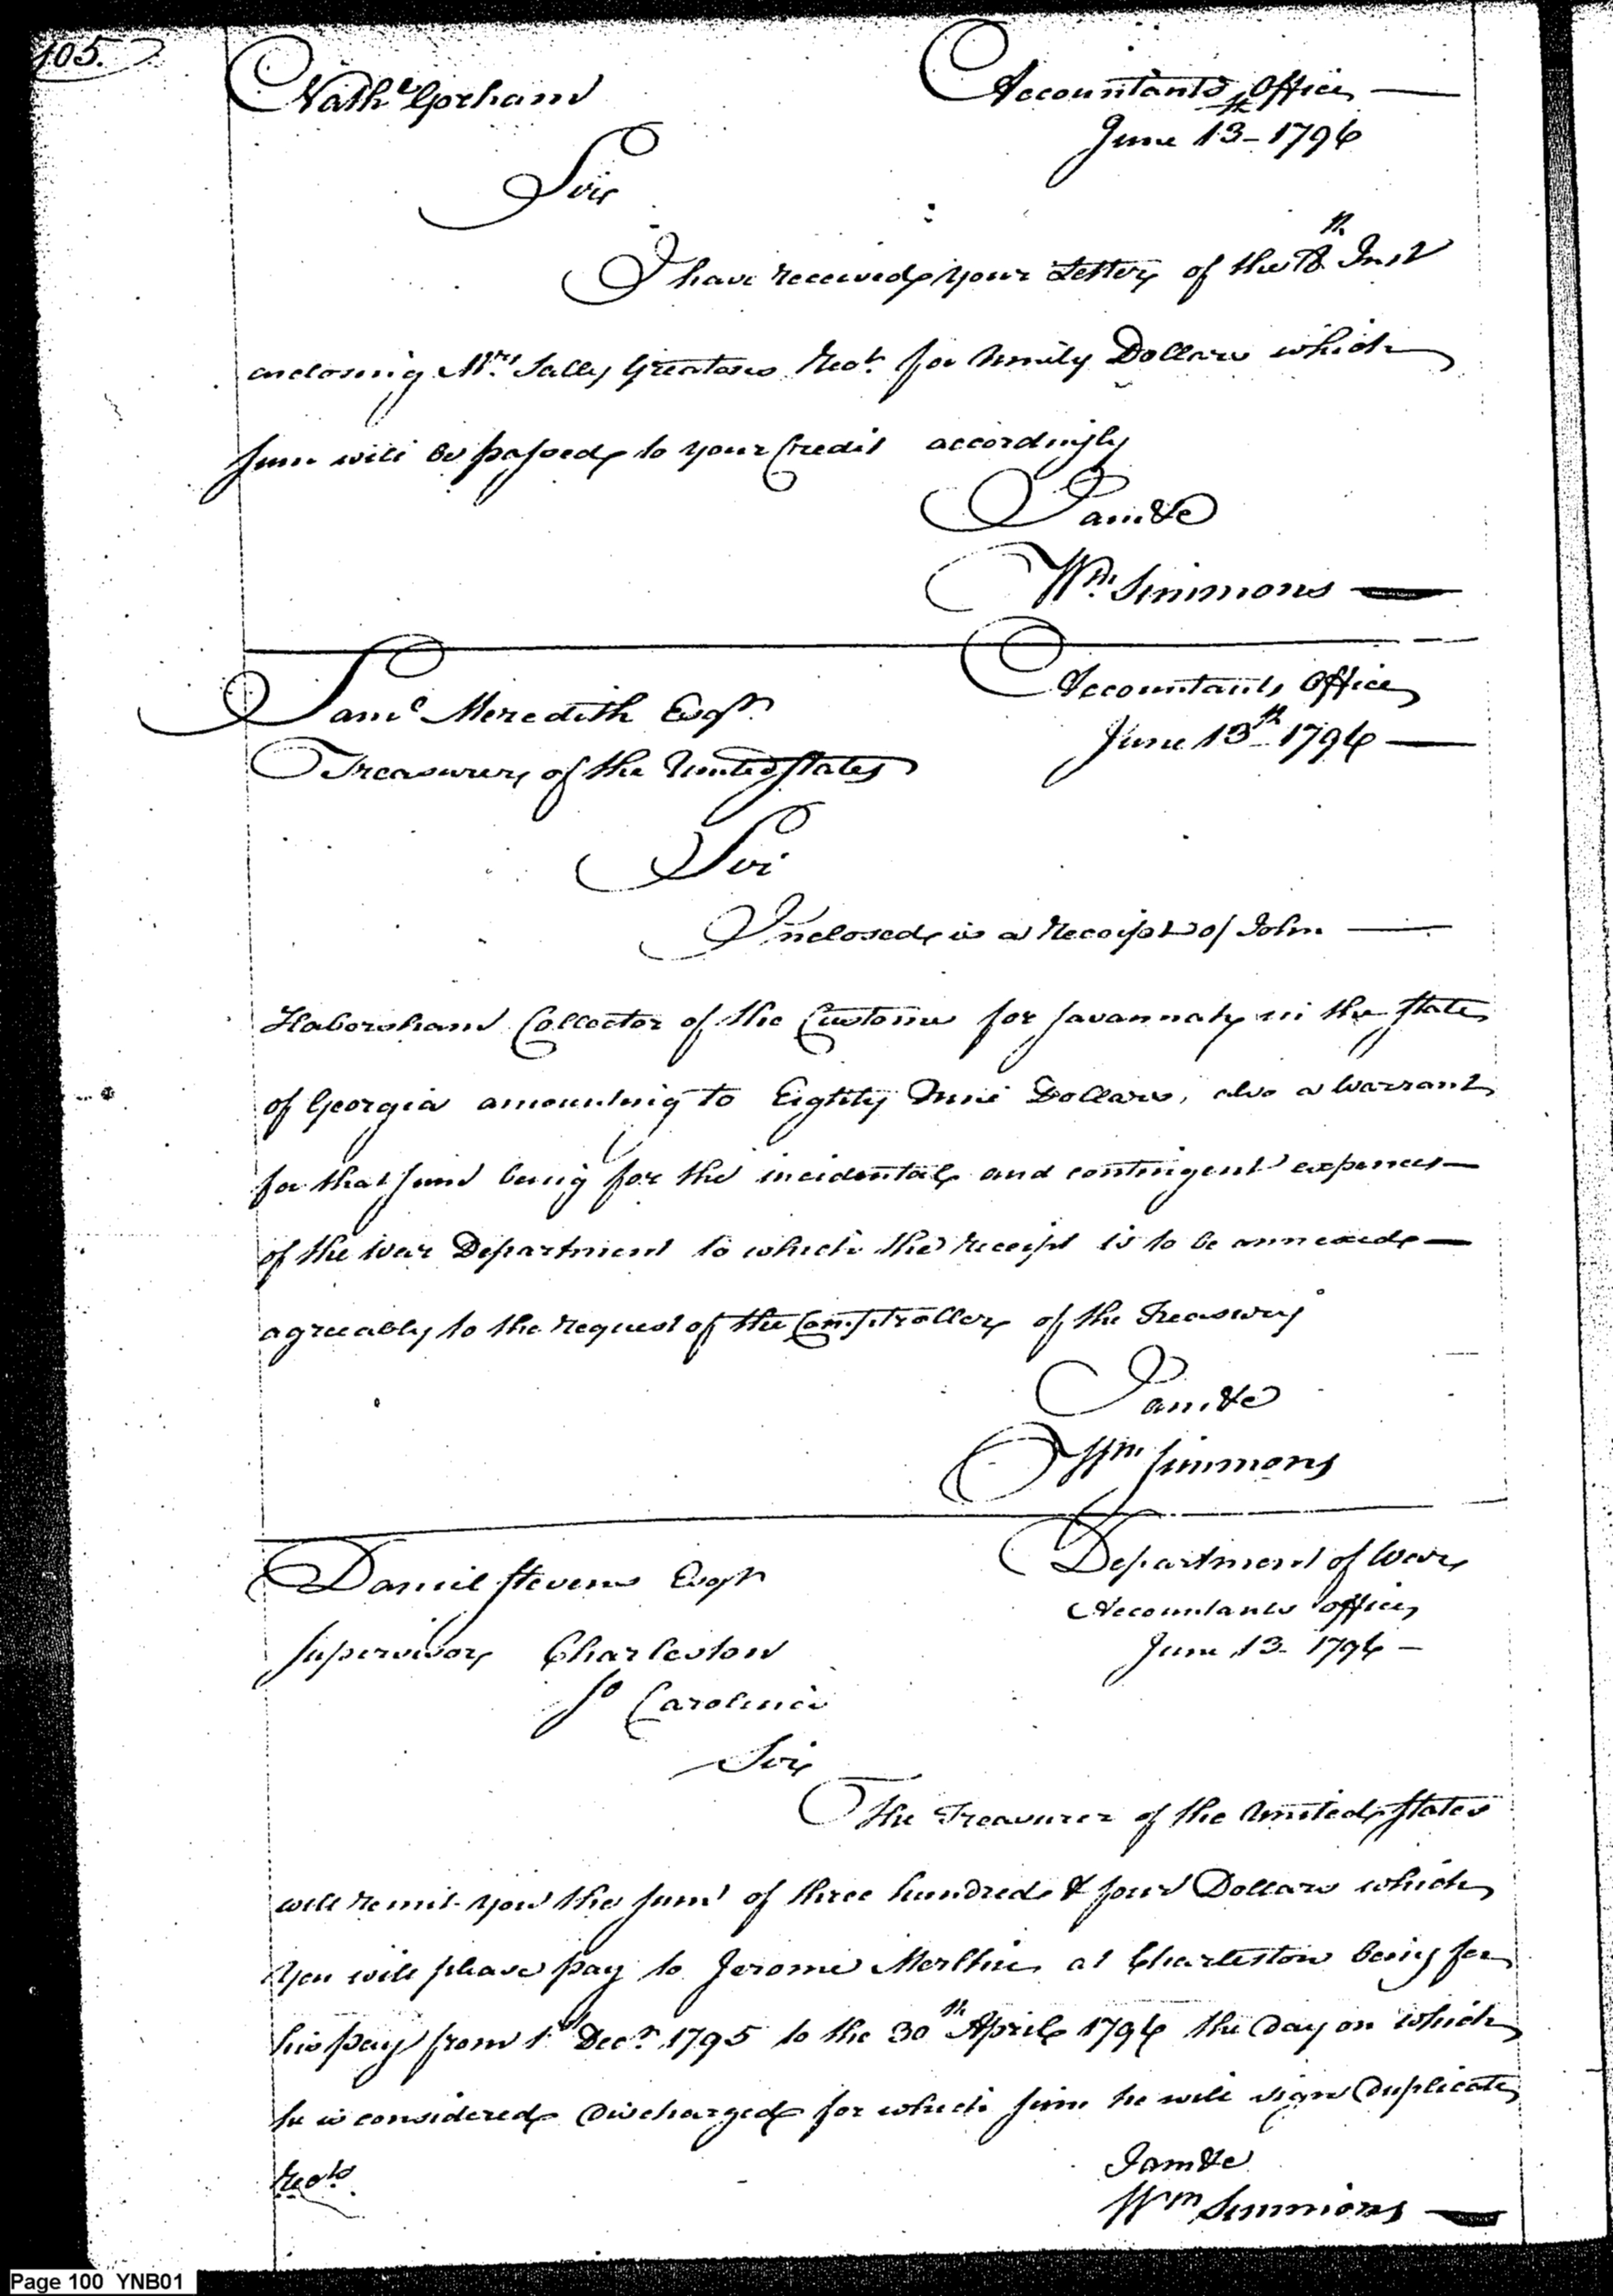 105.
Nath.l Gorham
Accountants Office
June 13th 1796
Sir
I have received your Letter of the 8th Inst
enclosing Mrs. Sally Greatons Rect. for Ninety Dollars which
sum will be passed to your Credit accordingly
I am &c
Wm. Simmons
Saml Meredith Esqr.
Accountants Office
Treasurer of the United States
June 13th 1796
Sir
Inclosed is a Receipt of John
Habersham Collector of the Customs for Savannah in the State
of Georgia amounting to Eighty Nine Dollars, also a Warrant
for that sum being for the incidental and contingent expences
of the War Department to which the receipt is to be annexed
agreeably to the request of the Comptroller of the Treasury
I am &c
Wm Simmons
Daniel Stevens Esqr
Department of War
Accountants Office
Supervisor Charleston
June 13 1796
So Carolina
Sir
The Treasurer of the United States
will remit you the sum of three hundred & four Dollars which
you will please pay to Jerome at Charleston being for
his pay from 1st Decr. 1795 to the 30th April 1796 the day on which
he is considered Discharged for which sum he will sign Duplicate
Rects.
I am &c
Wm Simmons
Page 100 YNB01